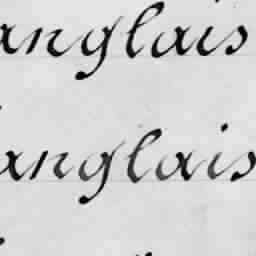 anglais
anglais